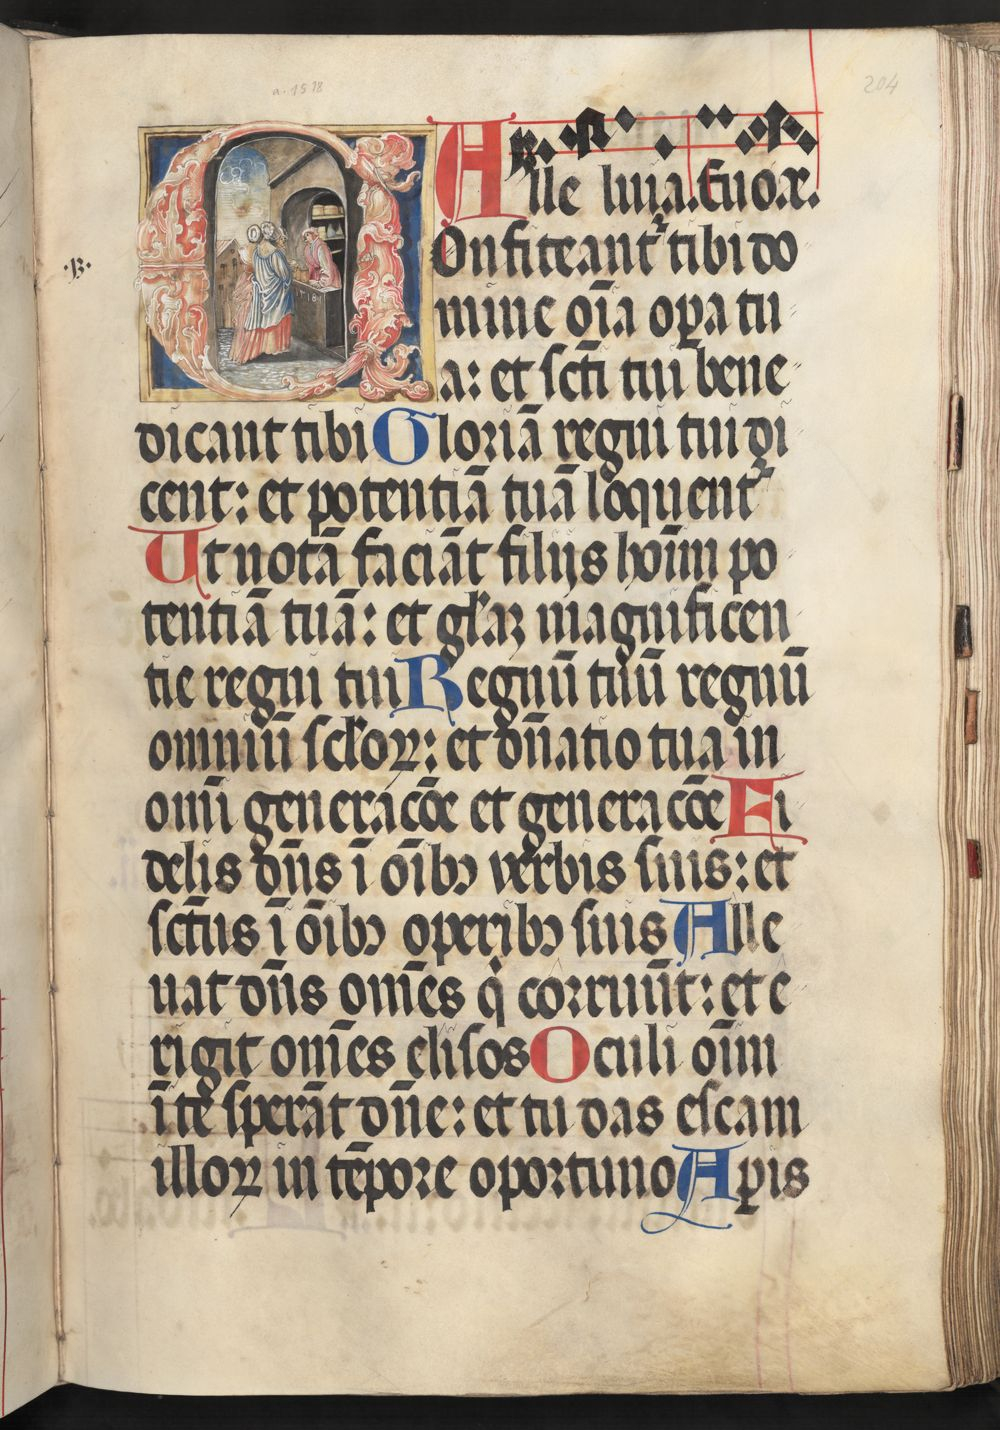 a. 1518
204
Alle luia. Euoae.
·B·
Onfiteant᷑ tibi do
mine oīa oꝑa tu
a: et scti tui bene
dicant tibi Gloriā regni tui di
cent: et potentiā tuā loquent᷑
Ut notā faciāt filijs hoīm po
tentiā tuā: et gl'aꝫ magnificen
tie regni tui Regnū tuū regnū
omniū scl'oꝝ: et dn̄atio tua in
omī generacōe et generacōe Fi
delis dn̄s ī oībꝯ verbis suis: et
sct̄us ī oībꝯ operibꝯ suis Alle
uat dn̄s om̄es q̇ corruūt: et e
rigit om̄es elisos Oculi oīm
ī te sperāt dn̄e: et tu das escam
illoꝝ in tēpore oportuno Aꝑis